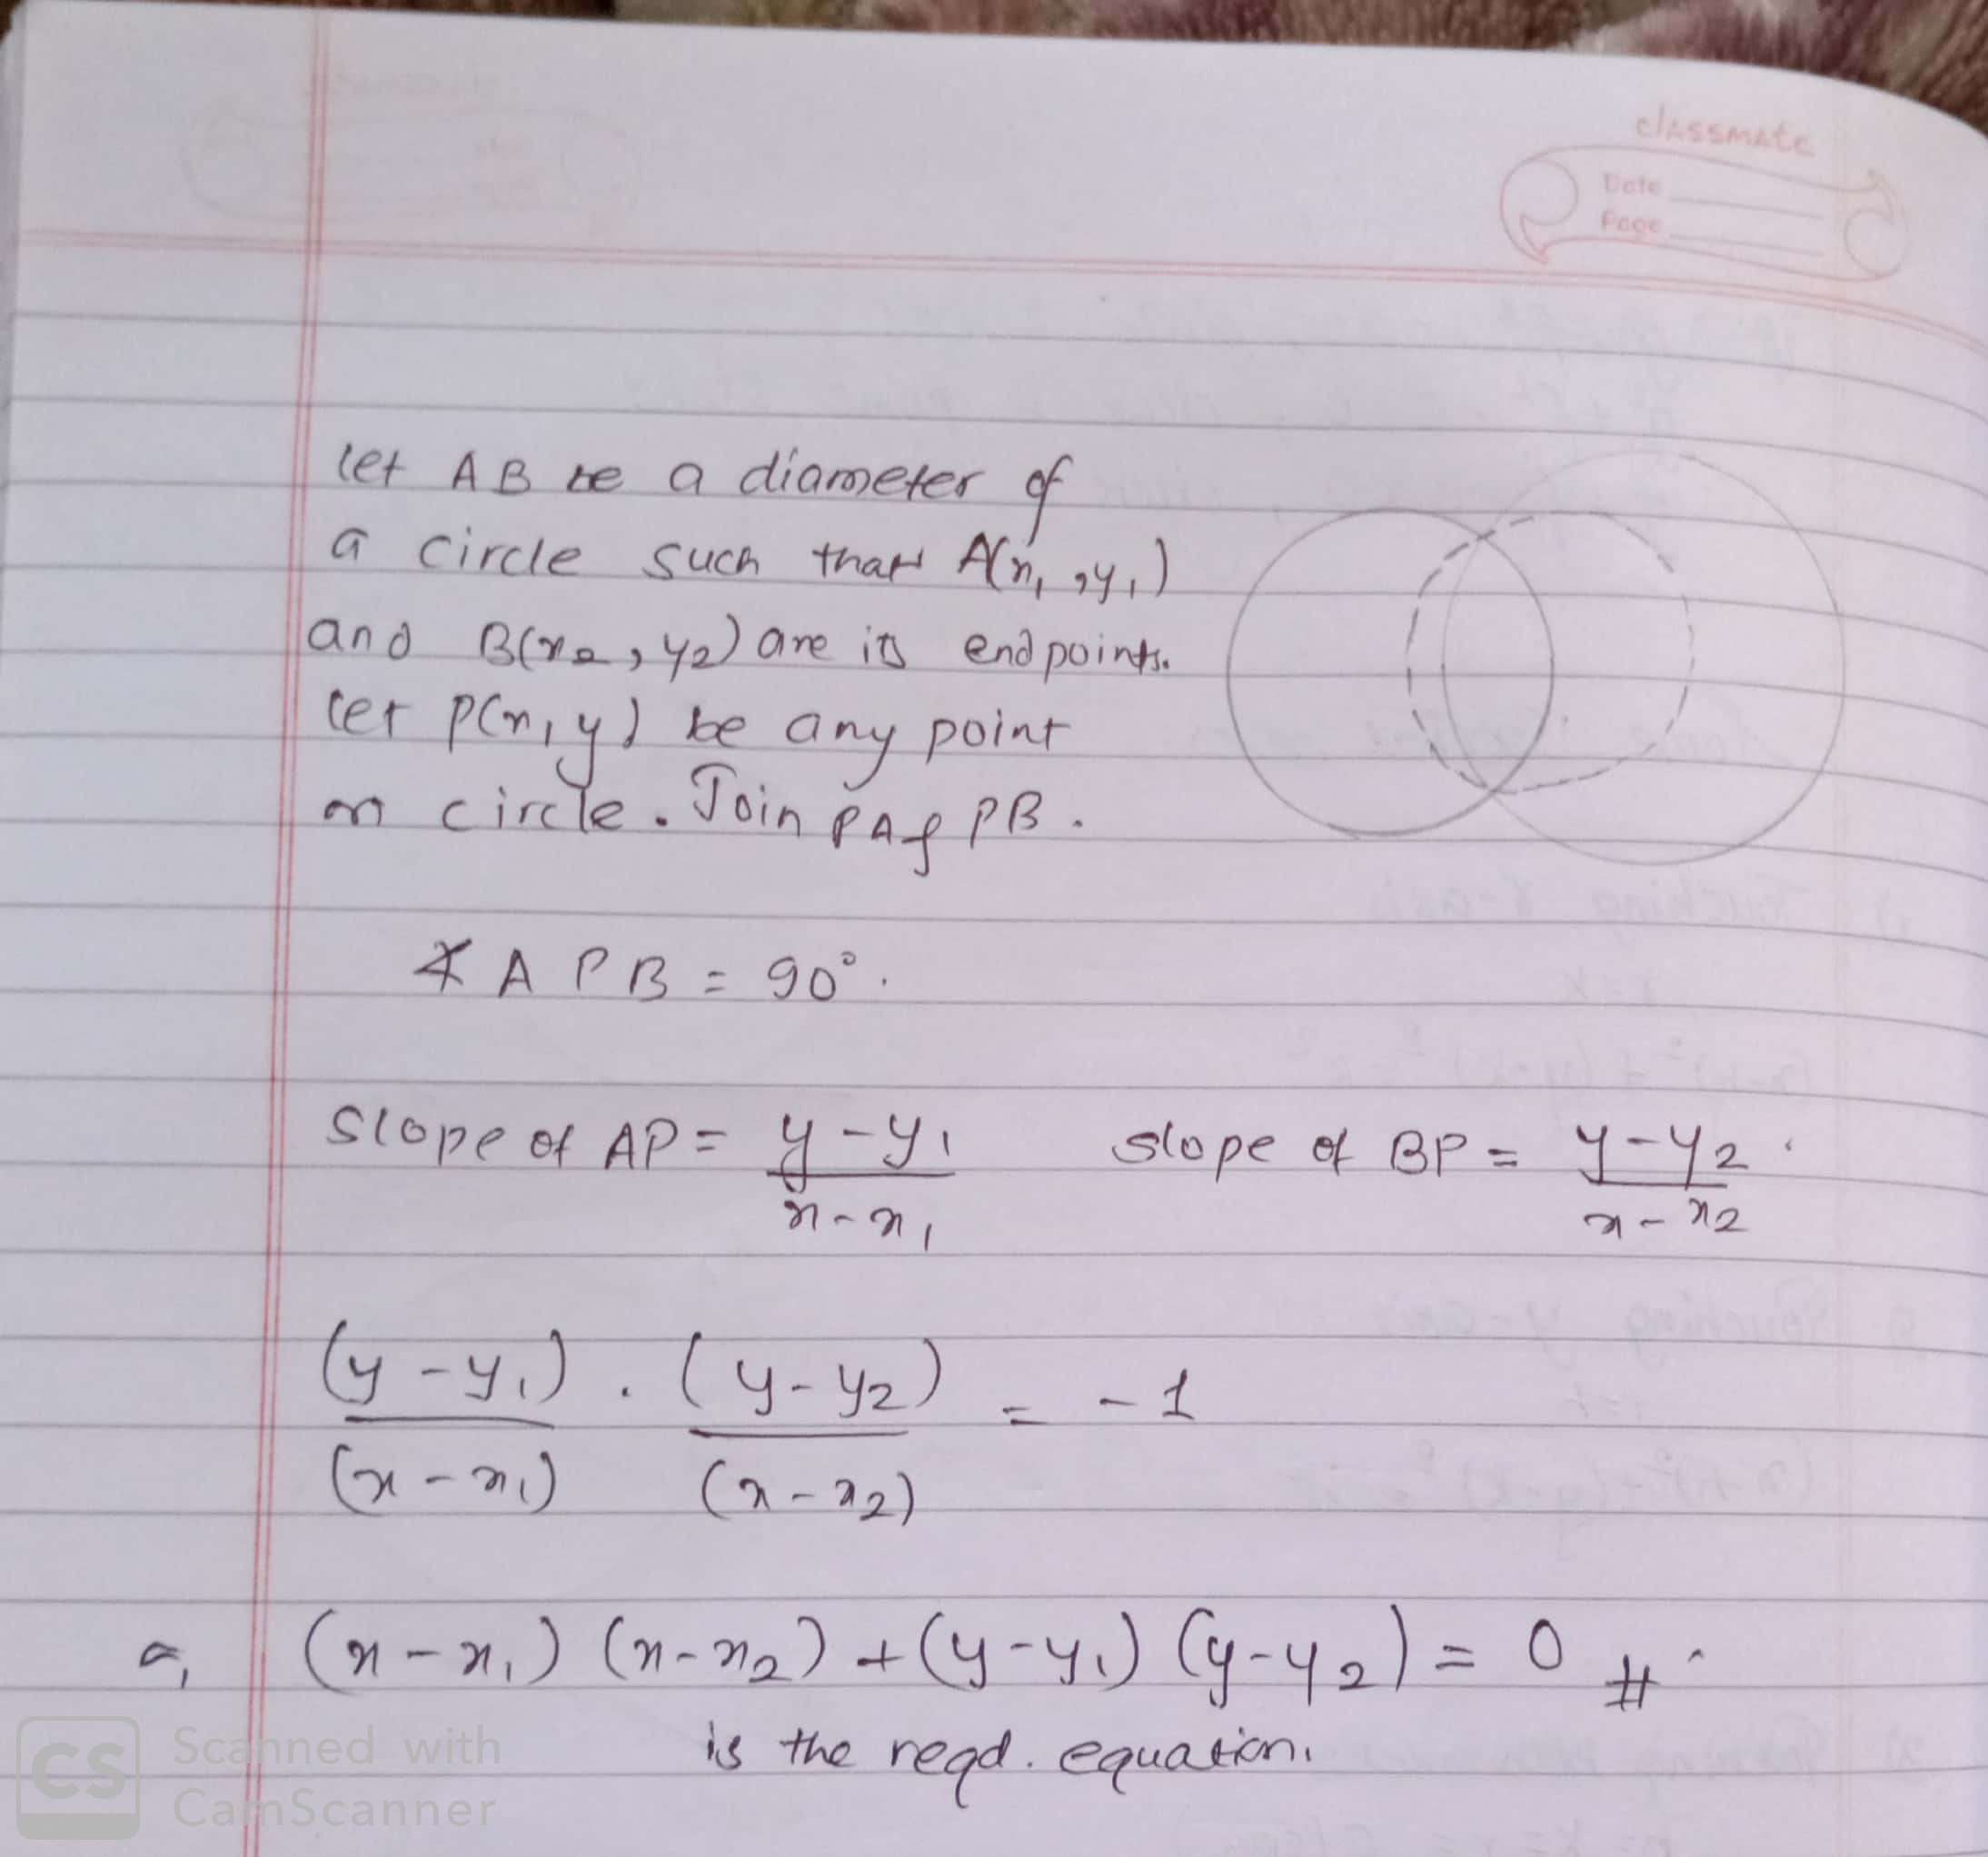 classmate
Date
Page
let AB be a diameter of
a circle such that A(x₁, y₁)
and B(x₂, y₂) are its endpoints.
let P(x, y) be any point
on circle. Join PA & PB.
∡APB = 90°.
Slope of AP = (y - y₁)/(x - x₁)    slope of BP = (y - y₂)/(x - x₂).
(y - y₁)/(x - x₁) . (y - y₂)/(x - x₂) = -1
(x - x₁) (x - x₂) + (y - y₁) (y - y₂) = 0 #.
is the reqd. equation.
CS Scanned with
CamScanner